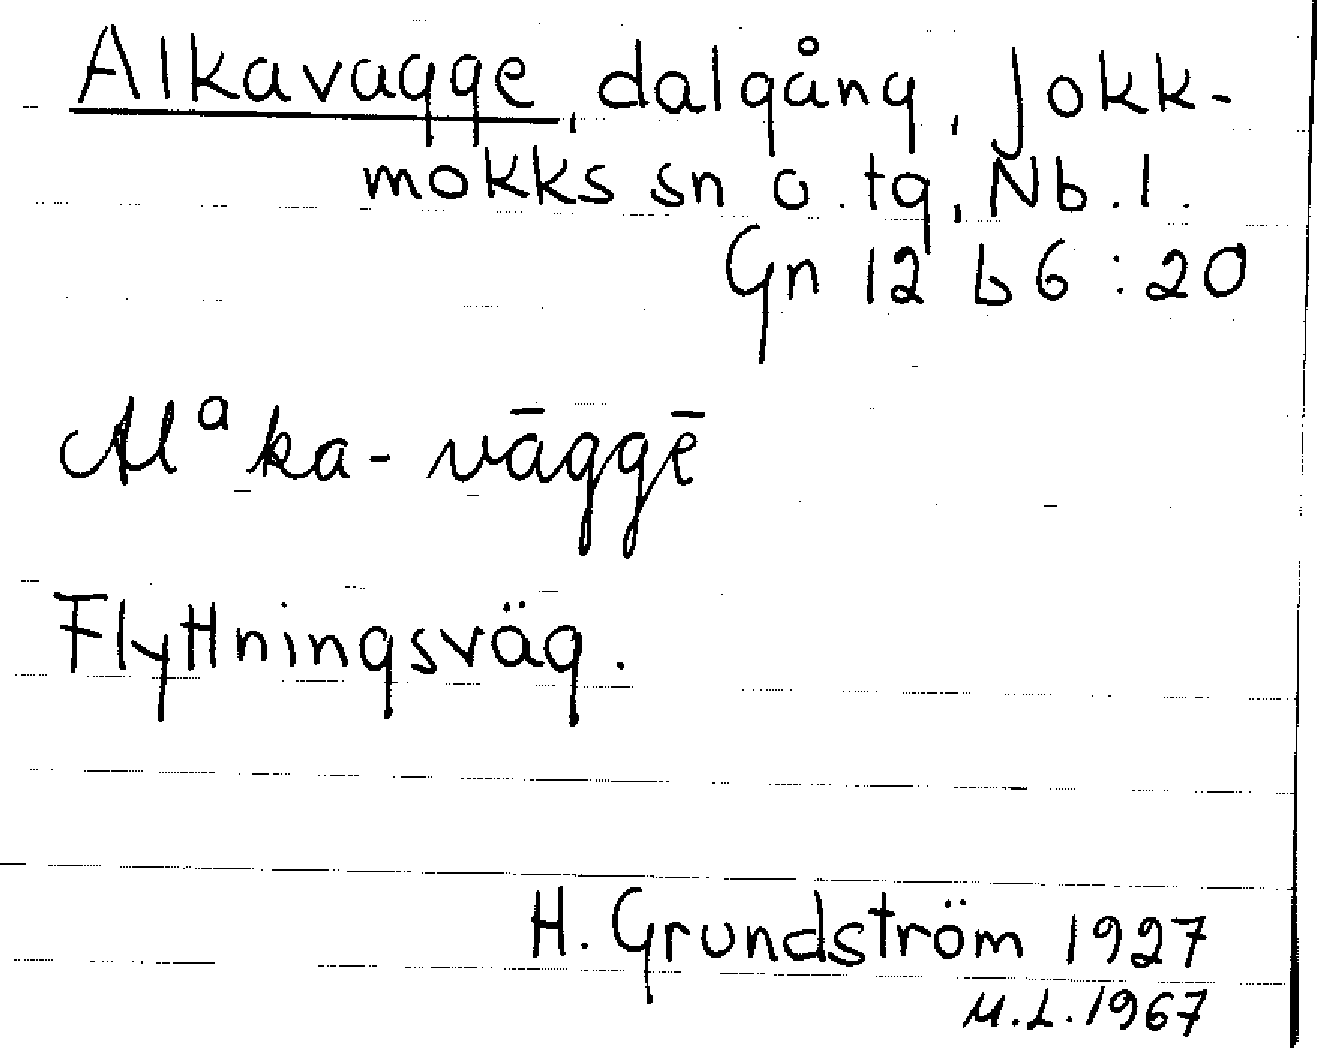 Alkavagge, dalgång, Jokk-
mokks sn o. tg, Nb. l.
Gn 12 b 6:20
Alᵃka-vāggē
Flyttningsväg.
H. Grundström 1927
M.L. 1967